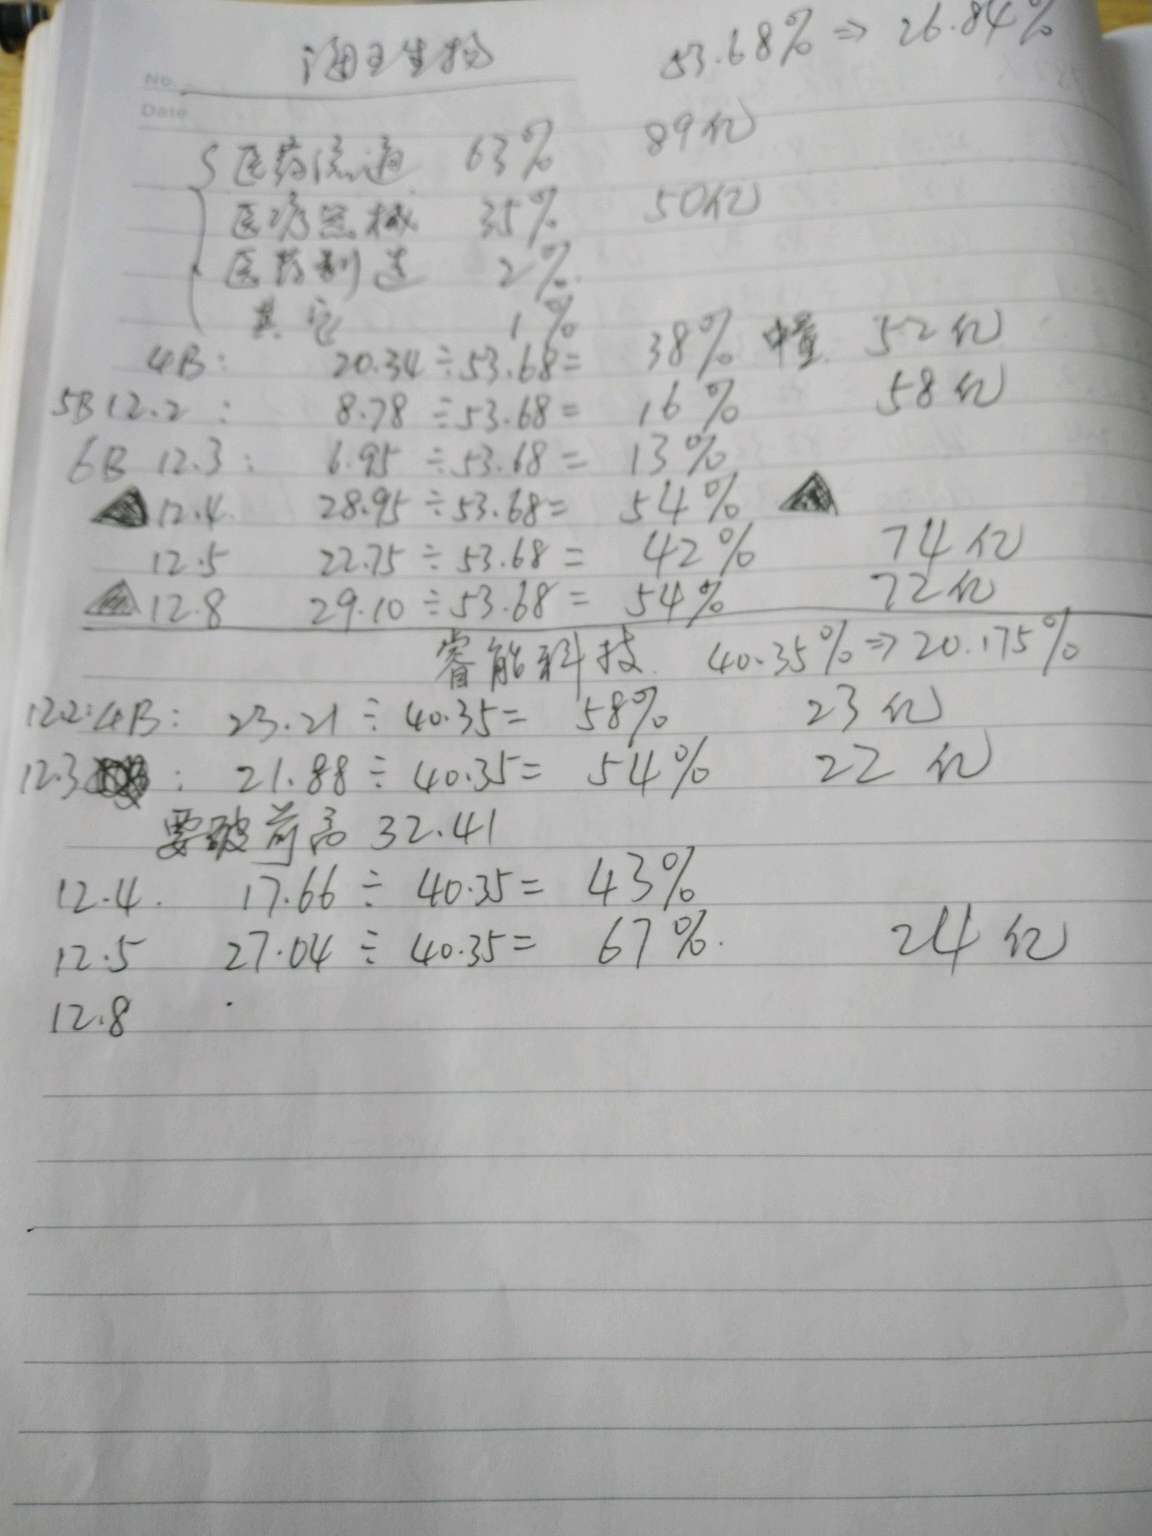 海王生物 53.68%⇒26.84%
No.
Date
医药流通 63% 89亿
医疗器械 35% 50亿
医药制造 2%
其它 1%
4B: 20.34÷53.68= 38% 中量 52亿
5B 12.2: 8.78÷53.68= 16% 58亿
6B 12.3: 6.95÷53.68= 13%
12.4 28.95÷53.68= 54%
12.5 22.75÷53.68= 42% 74亿
12.8 29.10÷53.68= 54% 72亿
睿能科技 40.35%⇒20.175%
12.2:4B: 23.21÷40.35= 58% 23亿
12.3: 21.88÷40.35= 54% 22亿
要破前高 32.41
12.4. 17.66÷40.35= 43%
12.5 27.04÷40.35= 67%. 24亿
12.8